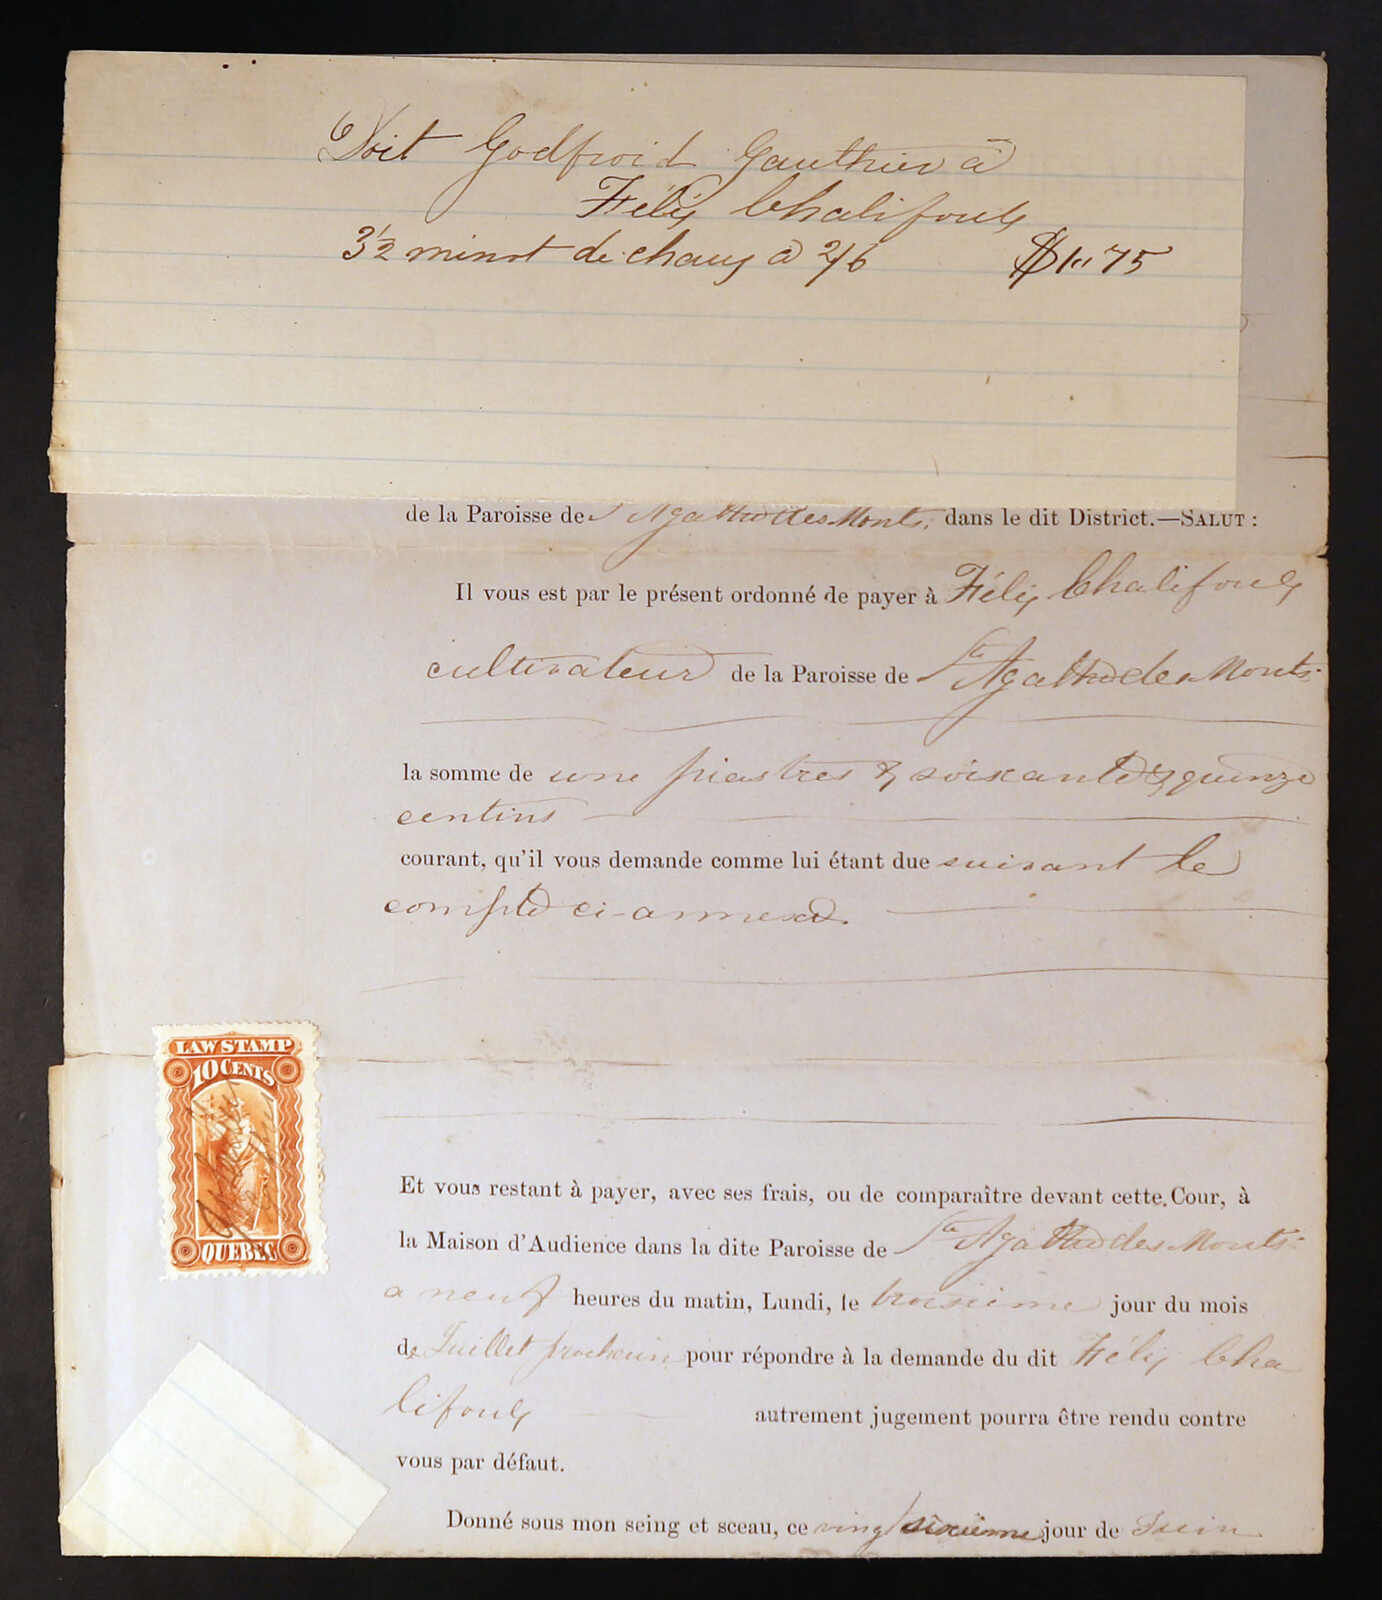 Doit Godfroid Gauthier à
Félix Chalifoux
3½ minot de chaux à 2/6 $1"75
de la Paroisse de Ste Agathe des Monts, dans le dit District.—SALUT :
Il vous est par le présent ordonné de payer à Félix Chalifoux
cultivateur de la Paroisse de Ste Agathe des Monts
la somme de une piastres & soixante & quinze
centins
courant, qu'il vous demande comme lui étant due suivant le
compte ci-annexé.
LAW STAMP
10 CENTS
QUEBEC
Et vous restant à payer, avec ses frais, ou de comparaître devant cette Cour, à
la Maison d'Audience dans la dite Paroisse de Ste Agathe des Monts
a neuf heures du matin, Lundi, le troisième jour du mois
de Juillet prochain pour répondre à la demande du dit Félix Cha
lifoux autrement jugement pourra être rendu contre
vous par défaut.
Donné sous mon seing et sceau, ce vingt sixième jour de Juin